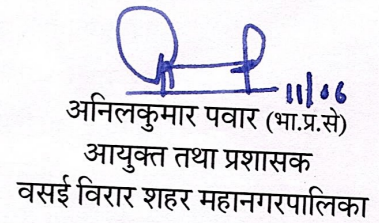 11/06
अनिलकुमार पवार (भा.प्र.से)
आयुक्त तथा प्रशासक
वसई विरार शहर महानगरपालिका